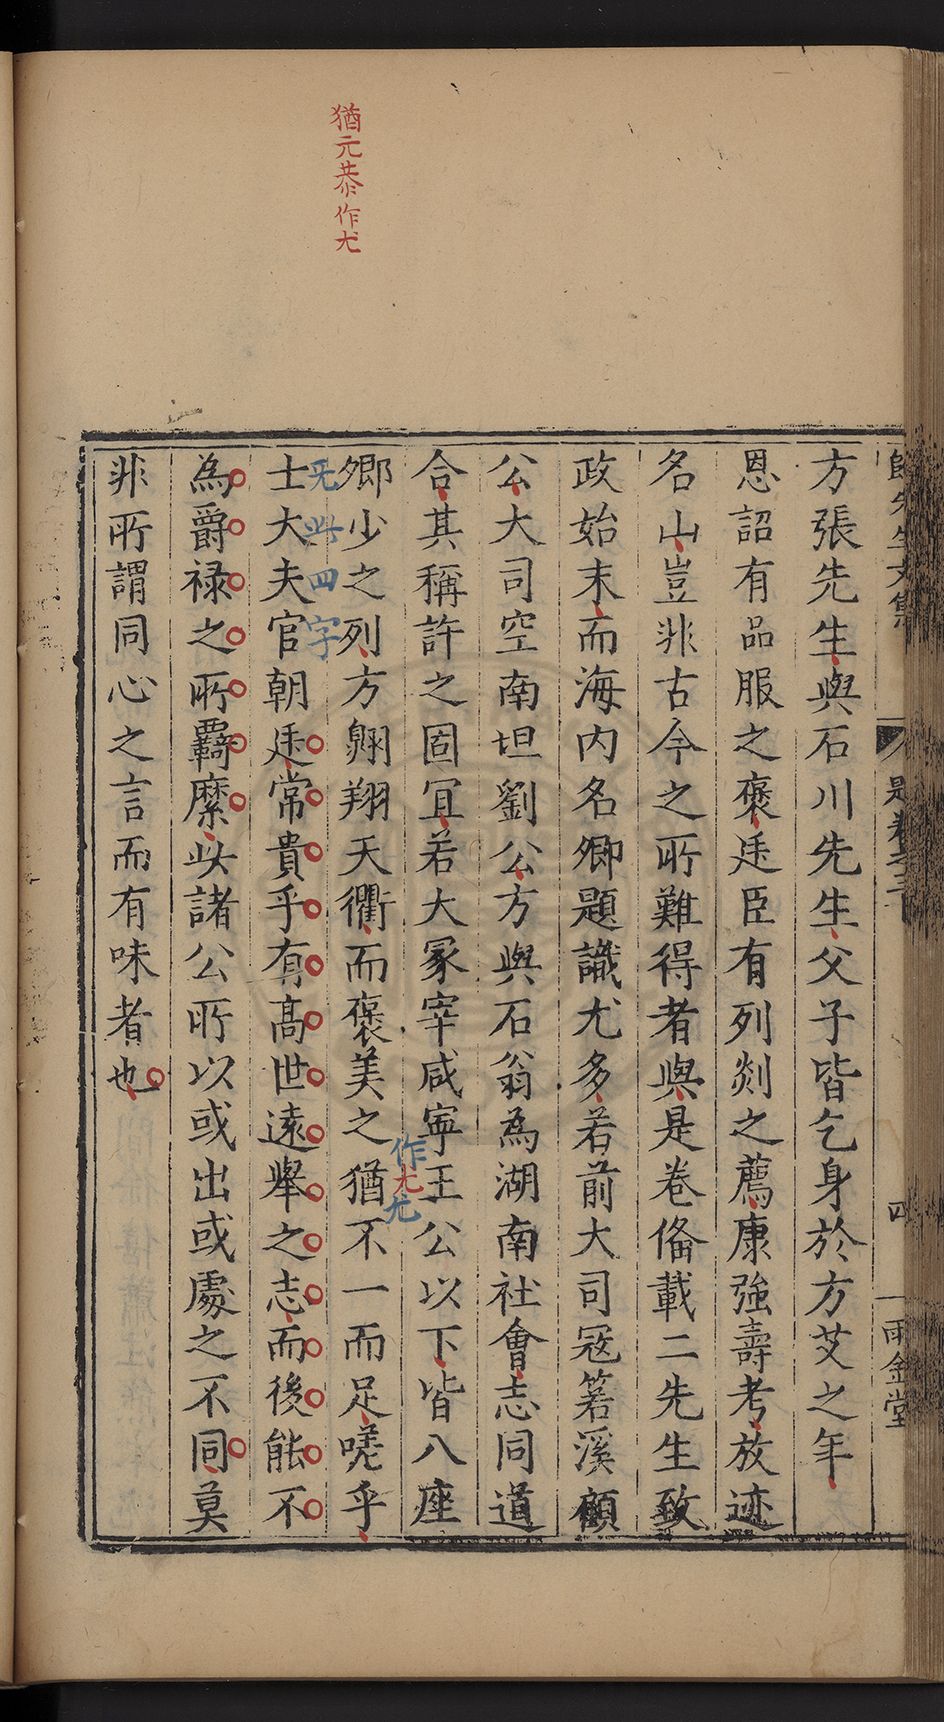 方張先生與石川先生父子皆乞身於方艾之年
恩詔有品服之褒廷臣有列剡之薦康強壽考放迹
名山豈非古今之所難得者與是卷俻載二先生致
政始末而海内名卿題識尤多若前大司冦箬溪顧
公大司空南坦劉公方與石翁為湖南社㑹志同道
合其稱許之固冝若大冢宰咸寧王公以下皆八座
卿少之列方翺翔天衢而褒美之猶不一而足嗟乎
士大夫官朝廷常貴乎有髙世遠舉之志而後能不
為爵禄之所羇縻此諸公所以或出或處之不同莫
非所謂同心之言而有味者也
猶元恭作尤
无此四字
作尤尤
四
雨金堂